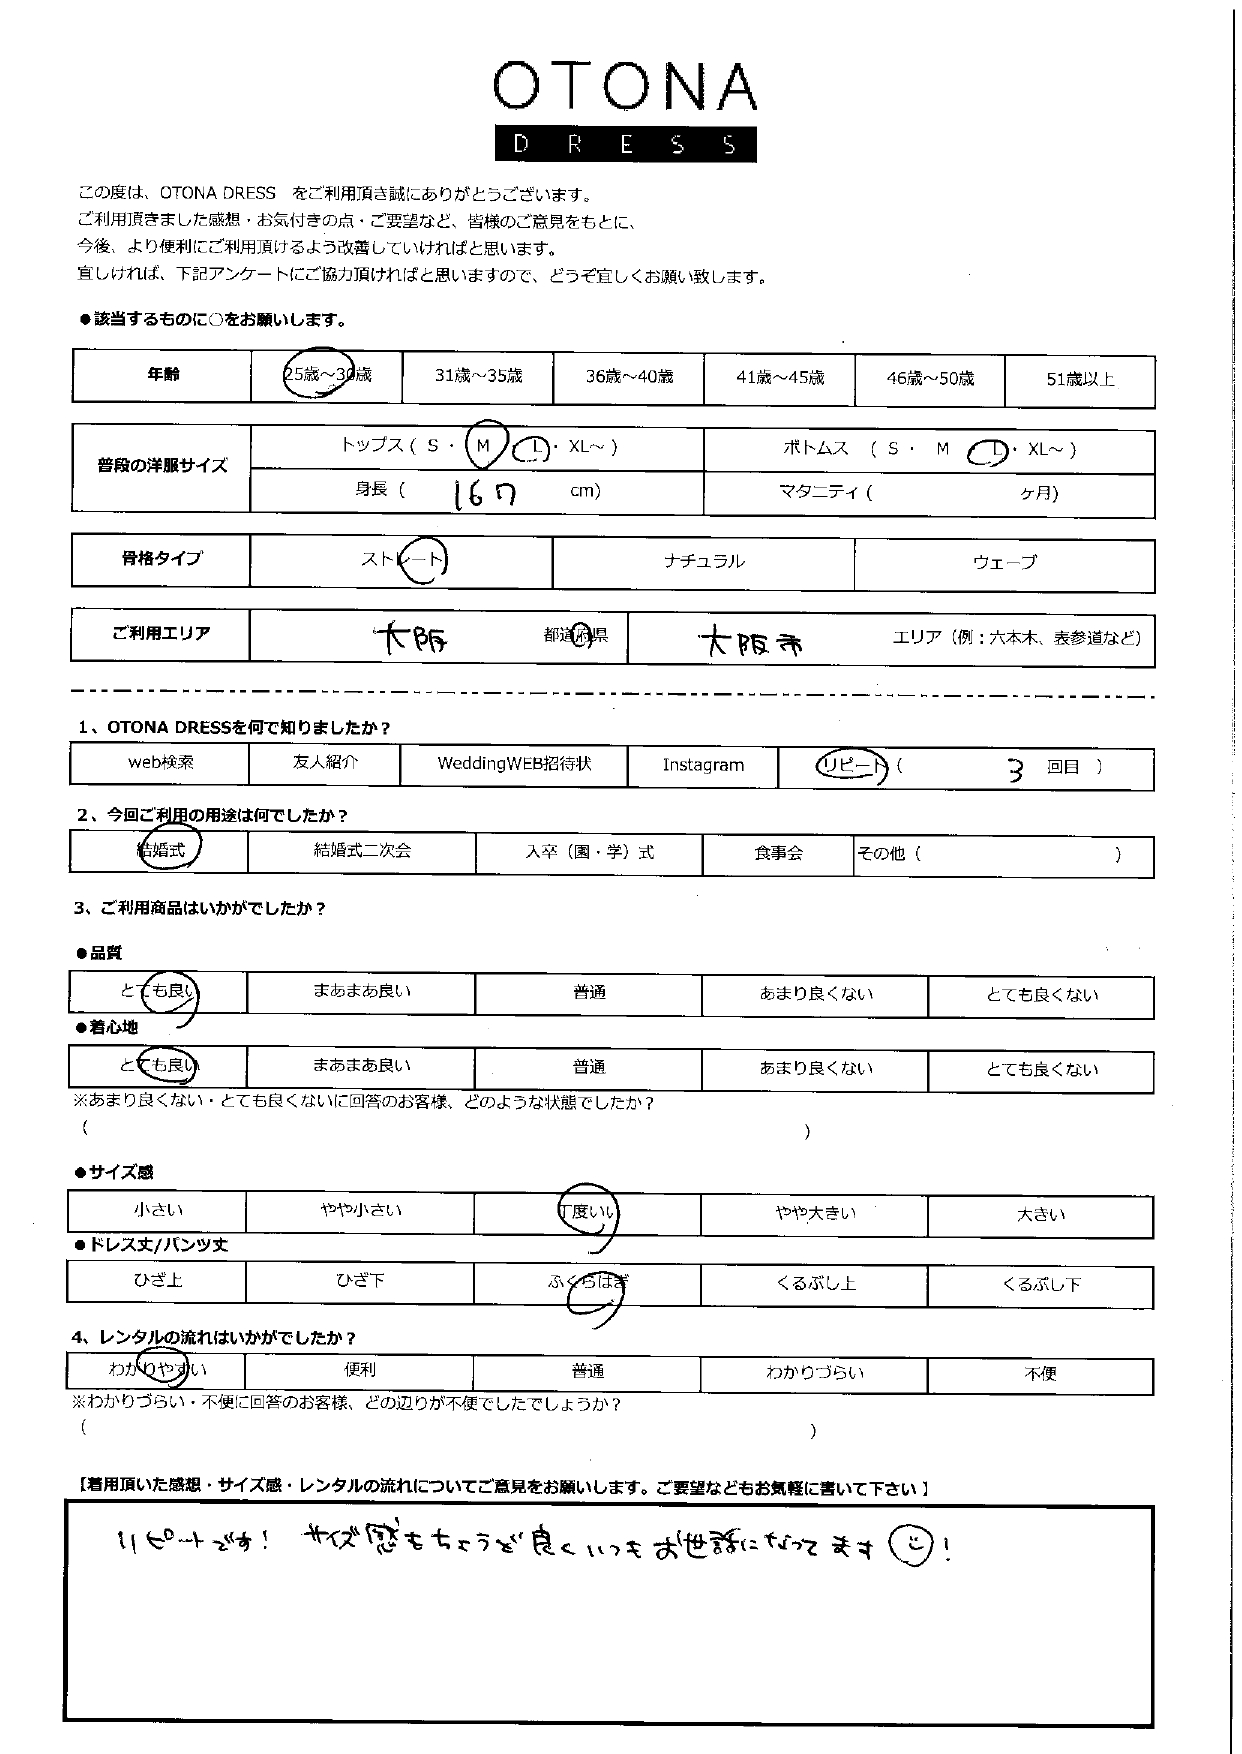 OTONA
DRESS
この度は、OTONA DRESS をご利用頂き誠にありがとうございます。
ご利用頂きました感想・お気付きの点・ご要望など、皆様のご意見をもとに、
今後、より便利にご利用頂けるよう改善していければと思います。
宜しければ、下記アンケートにご協力頂ければと思いますので、どうぞ宜しくお願い致します。
●該当するものに○をお願いします。
年齢 25歳～30歳 31歳～35歳 36歳～40歳 41歳～45歳 46歳～50歳 51歳以上
普段の洋服サイズ トップス ( S ・ M ・ L ・ XL～ ) ボトムス ( S ・ M ・ L ・ XL～ )
身長 ( 167 cm) マタニティ ( ヶ月)
骨格タイプ ストレート ナチュラル ウェーブ
ご利用エリア 大阪 都道府県 大阪市 エリア（例：六本木、表参道など）
1、OTONA DRESSを何で知りましたか？
web検索 友人紹介 WeddingWEB招待状 Instagram リピート ( 3 回目 )
2、今回ご利用の用途は何でしたか？
結婚式 結婚式二次会 入卒（園・学）式 食事会 その他 ( )
3、ご利用商品はいかがでしたか？
●品質
とても良い まあまあ良い 普通 あまり良くない とても良くない
●着心地
とても良い まあまあ良い 普通 あまり良くない とても良くない
※あまり良くない・とても良くないに回答のお客様、どのような状態でしたか？
( )
●サイズ感
小さい やや小さい 丁度いい やや大きい 大きい
●ドレス丈/パンツ丈
ひざ上 ひざ下 ふくらはぎ くるぶし上 くるぶし下
4、レンタルの流れはいかがでしたか？
わかりやすい 便利 普通 わかりづらい 不便
※わかりづらい・不便に回答のお客様、どの辺りが不便でしたでしょうか？
( )
【着用頂いた感想・サイズ感・レンタルの流れについてご意見をお願いします。ご要望などもお気軽に書いて下さい】
リピートです！ サイズ感もちょうど良くいつもお世話になってます！